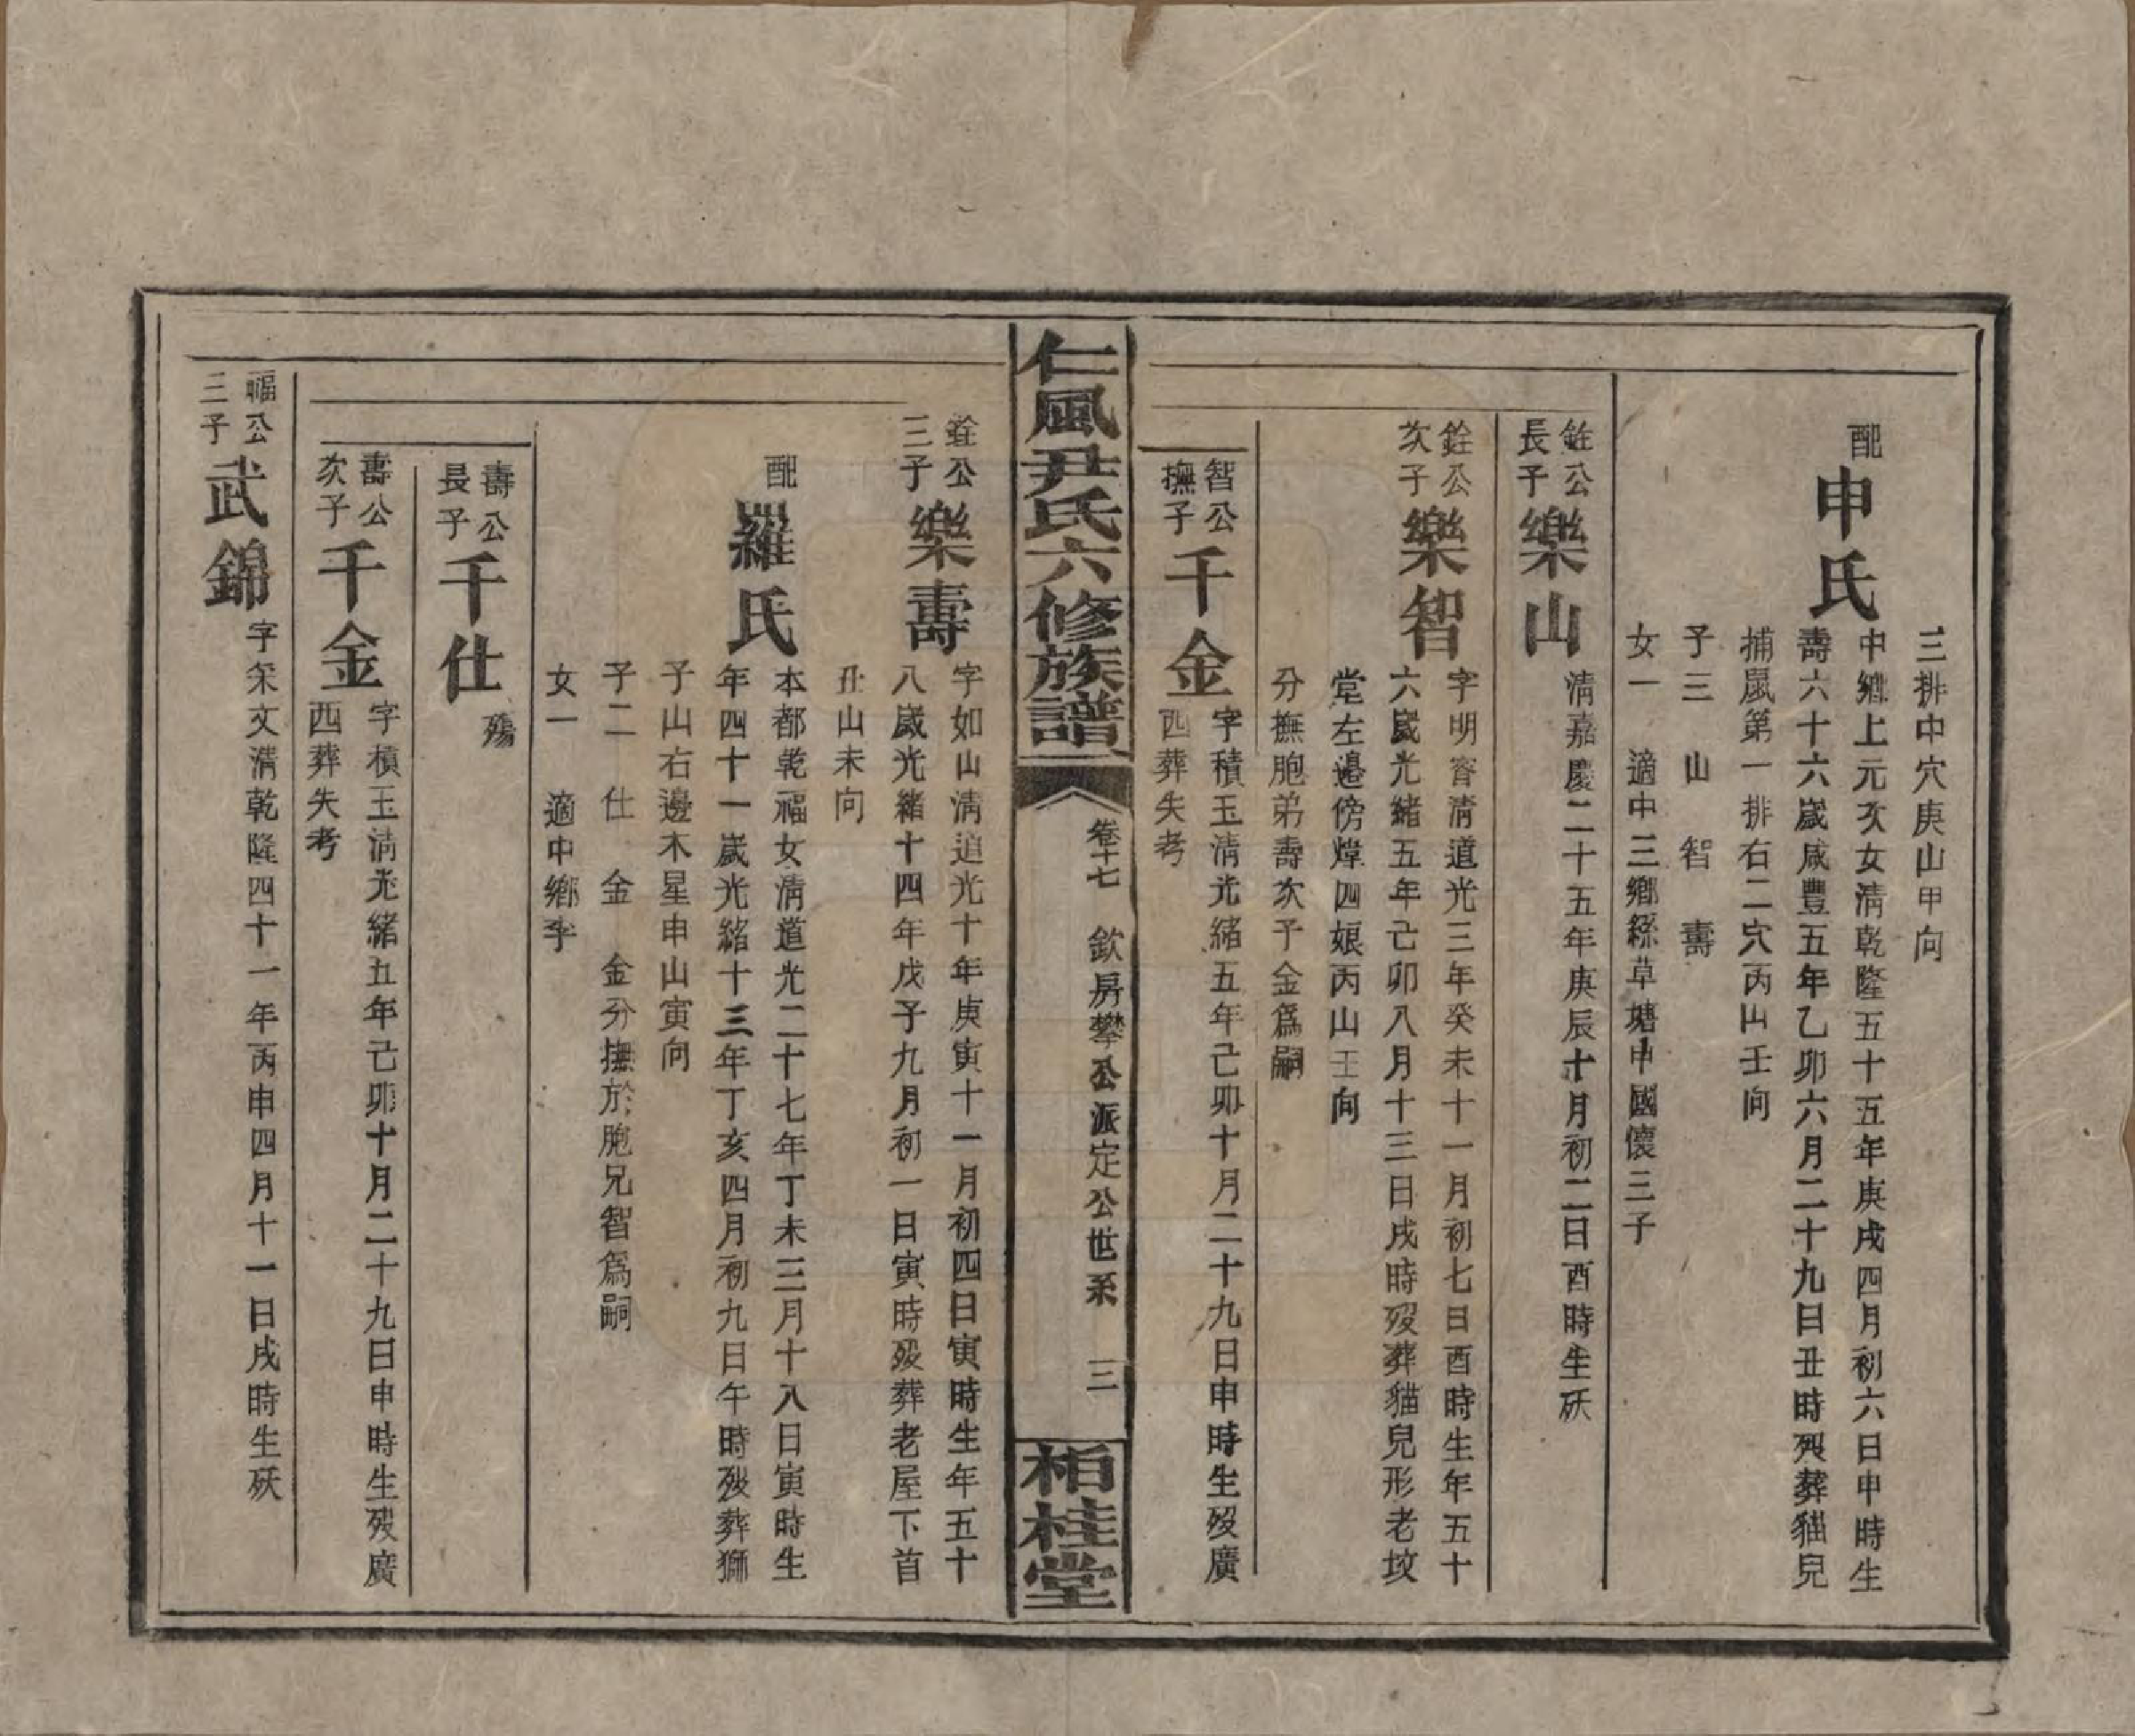 三排中穴庚山甲向
配
申氏
中鄉上元次女清乾隆五十五年庚戌四月初六日申時生
壽六十六歲咸豐五年乙卯六月二十九日丑時歿葬貓兒
捕鼠第一排右二穴丙山壬向
子三 山 智 壽
女一 適中三鄉絲草塘申國懷三子
銓公
長子
樂山
清嘉慶二十五年庚辰十月初二日酉時生殀
銓公
次子
樂智
字明睿清道光三年癸未十一月初七日酉時生年五十
六歲光緒五年己卯八月十三日戌時歿葬貓兒形老坟
堂左邊傍煒四娘丙山壬向
分撫胞弟壽次子金為嗣
智公
撫子
千金
字積玉清光緒五年己卯十月二十九日申時生歿廣
西葬失考
仁風尹氏六修族譜
卷十七 欽房攀公派定公世系 三
柏桂堂
銓公
三子
樂壽
字如山清道光十年庚寅十一月初四日寅時生年五十
八歲光緒十四年戊子九月初一日寅時歿葬老屋下首
丑山未向
配
羅氏
本都乾福女清道光二十七年丁未三月十八日寅時生
年四十一歲光緒十三年丁亥四月初九日午時歿葬獅
子山右邊木星申山寅向
子二 仕 金 金分撫於胞兄智為嗣
女一 適中鄉李
壽公
長子
千仕
殤
壽公
次子
千金
字積玉清光緒五年己卯十月二十九日申時生歿廣
西葬失考
福公
三子
武錦
字采文清乾隆四十一年丙申四月十一日戌時生殀